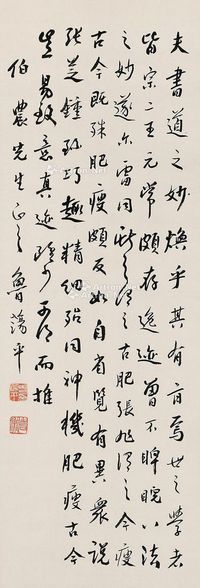 夫書道之妙煥乎其有旨焉世之學者
皆宗二王元常頗存逸迹曾不睥睨八法
之妙遂尔雷同獻之謂之古肥張旭謂之今瘦
古今既殊肥瘦頗反如自省覽有異衆說
張芝鍾繇巧趣精細殆同神機肥瘦古今
豈易致意真迹雖少可得而推
伯農先生正之 魯蕩平